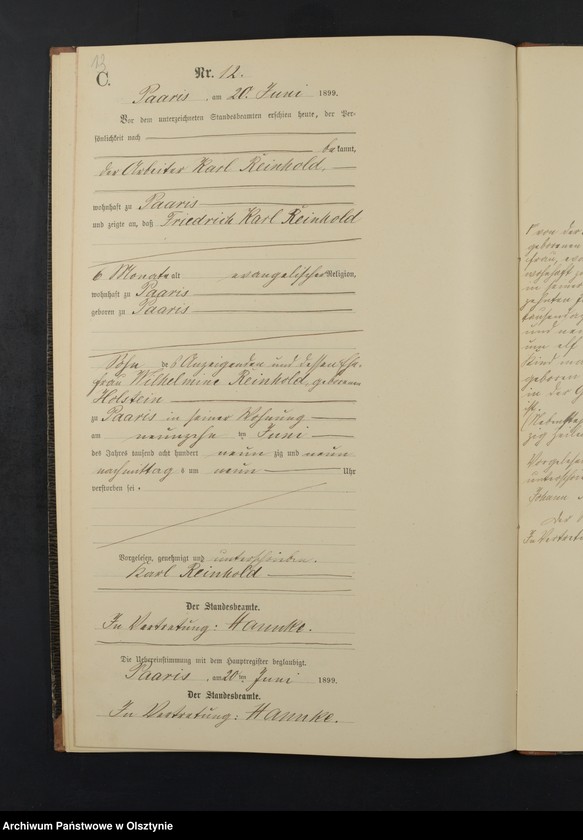 12
C.
Nr. 12.
Paaris, am 20. Juni 1899.
Vor dem unterzeichneten Standesbeamten erschien heute, der Per-
sönlichkeit nach
be kannt,
der Arbeiter Karl Reinhold,
wohnhaft zu Paaris
und zeigte an, daß Friedrich Karl Reinhold
6 Monate alt evangelischer Religion,
wohnhaft zu Paaris
geboren zu Paaris
Sohn des Anzeigenden und dessen Ehe-
frau Wilhelmine Reinhold geborenen
Holstein
zu Paaris in seiner Wohnung
am neunzehn ten Juni
des Jahres tausend acht hundert neun zig und neun
nachmittag s um neun Uhr
verstorben sei.
Vorgelesen, genehmigt und unterschrieben.
Karl Reinhold
Der Standesbeamte.
In Vertretung: Hannke.
Die Uebereinstimmung mit dem Hauptregister beglaubigt.
Paaris, am 20 ten Juni 1899.
Der Standesbeamte.
In Vertretung: Hannke.
von der
geborenen
frau, eva
wohnhaft z
in seiner
zehnten
tausend a
und neu
um elf
Kind m
geboren
in der
zig
Vorgelese
unterschri
Johann
Der S
In Vertret
Archiwum Państwowe w Olsztynie